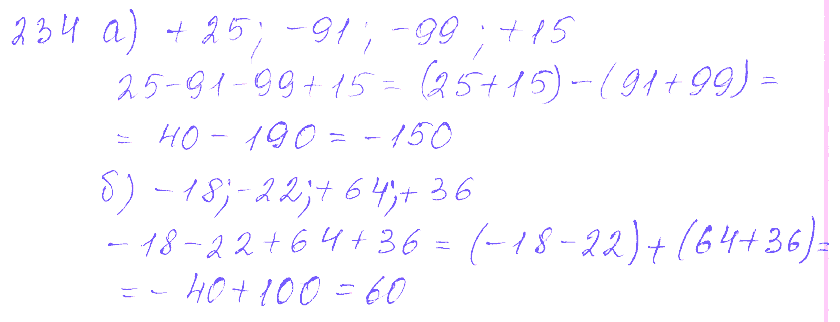 234 а) + 25; -91; -99; +15
25-91-99+15 = (25+15)-(91+99) =
= 40 - 190 = -150
б) -18; -22; + 64; + 36
-18-22+64+36 = (-18-22)+(64+36)=
= - 40+100 = 60